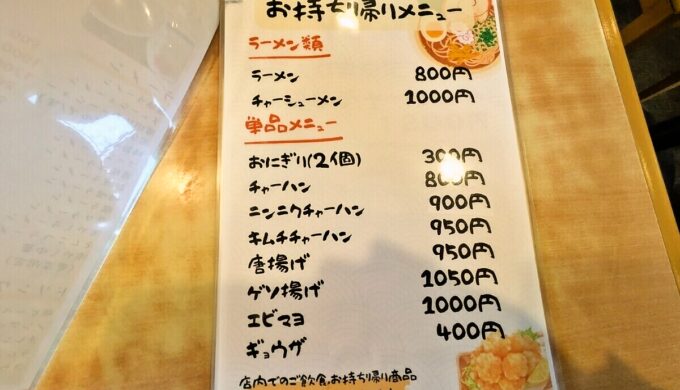 お持ち帰りメニュー
ラーメン類
ラーメン 800円
チャーシューメン 1000円
単品メニュー
おにぎり(2個) 300円
チャーハン 800円
ニンニクチャーハン 900円
キムチチャーハン 950円
唐揚げ 950円
ゲソ揚げ 1050円
エビマヨ 1000円
ギョウザ 400円
店内でのご飲食、お持ち帰り商品